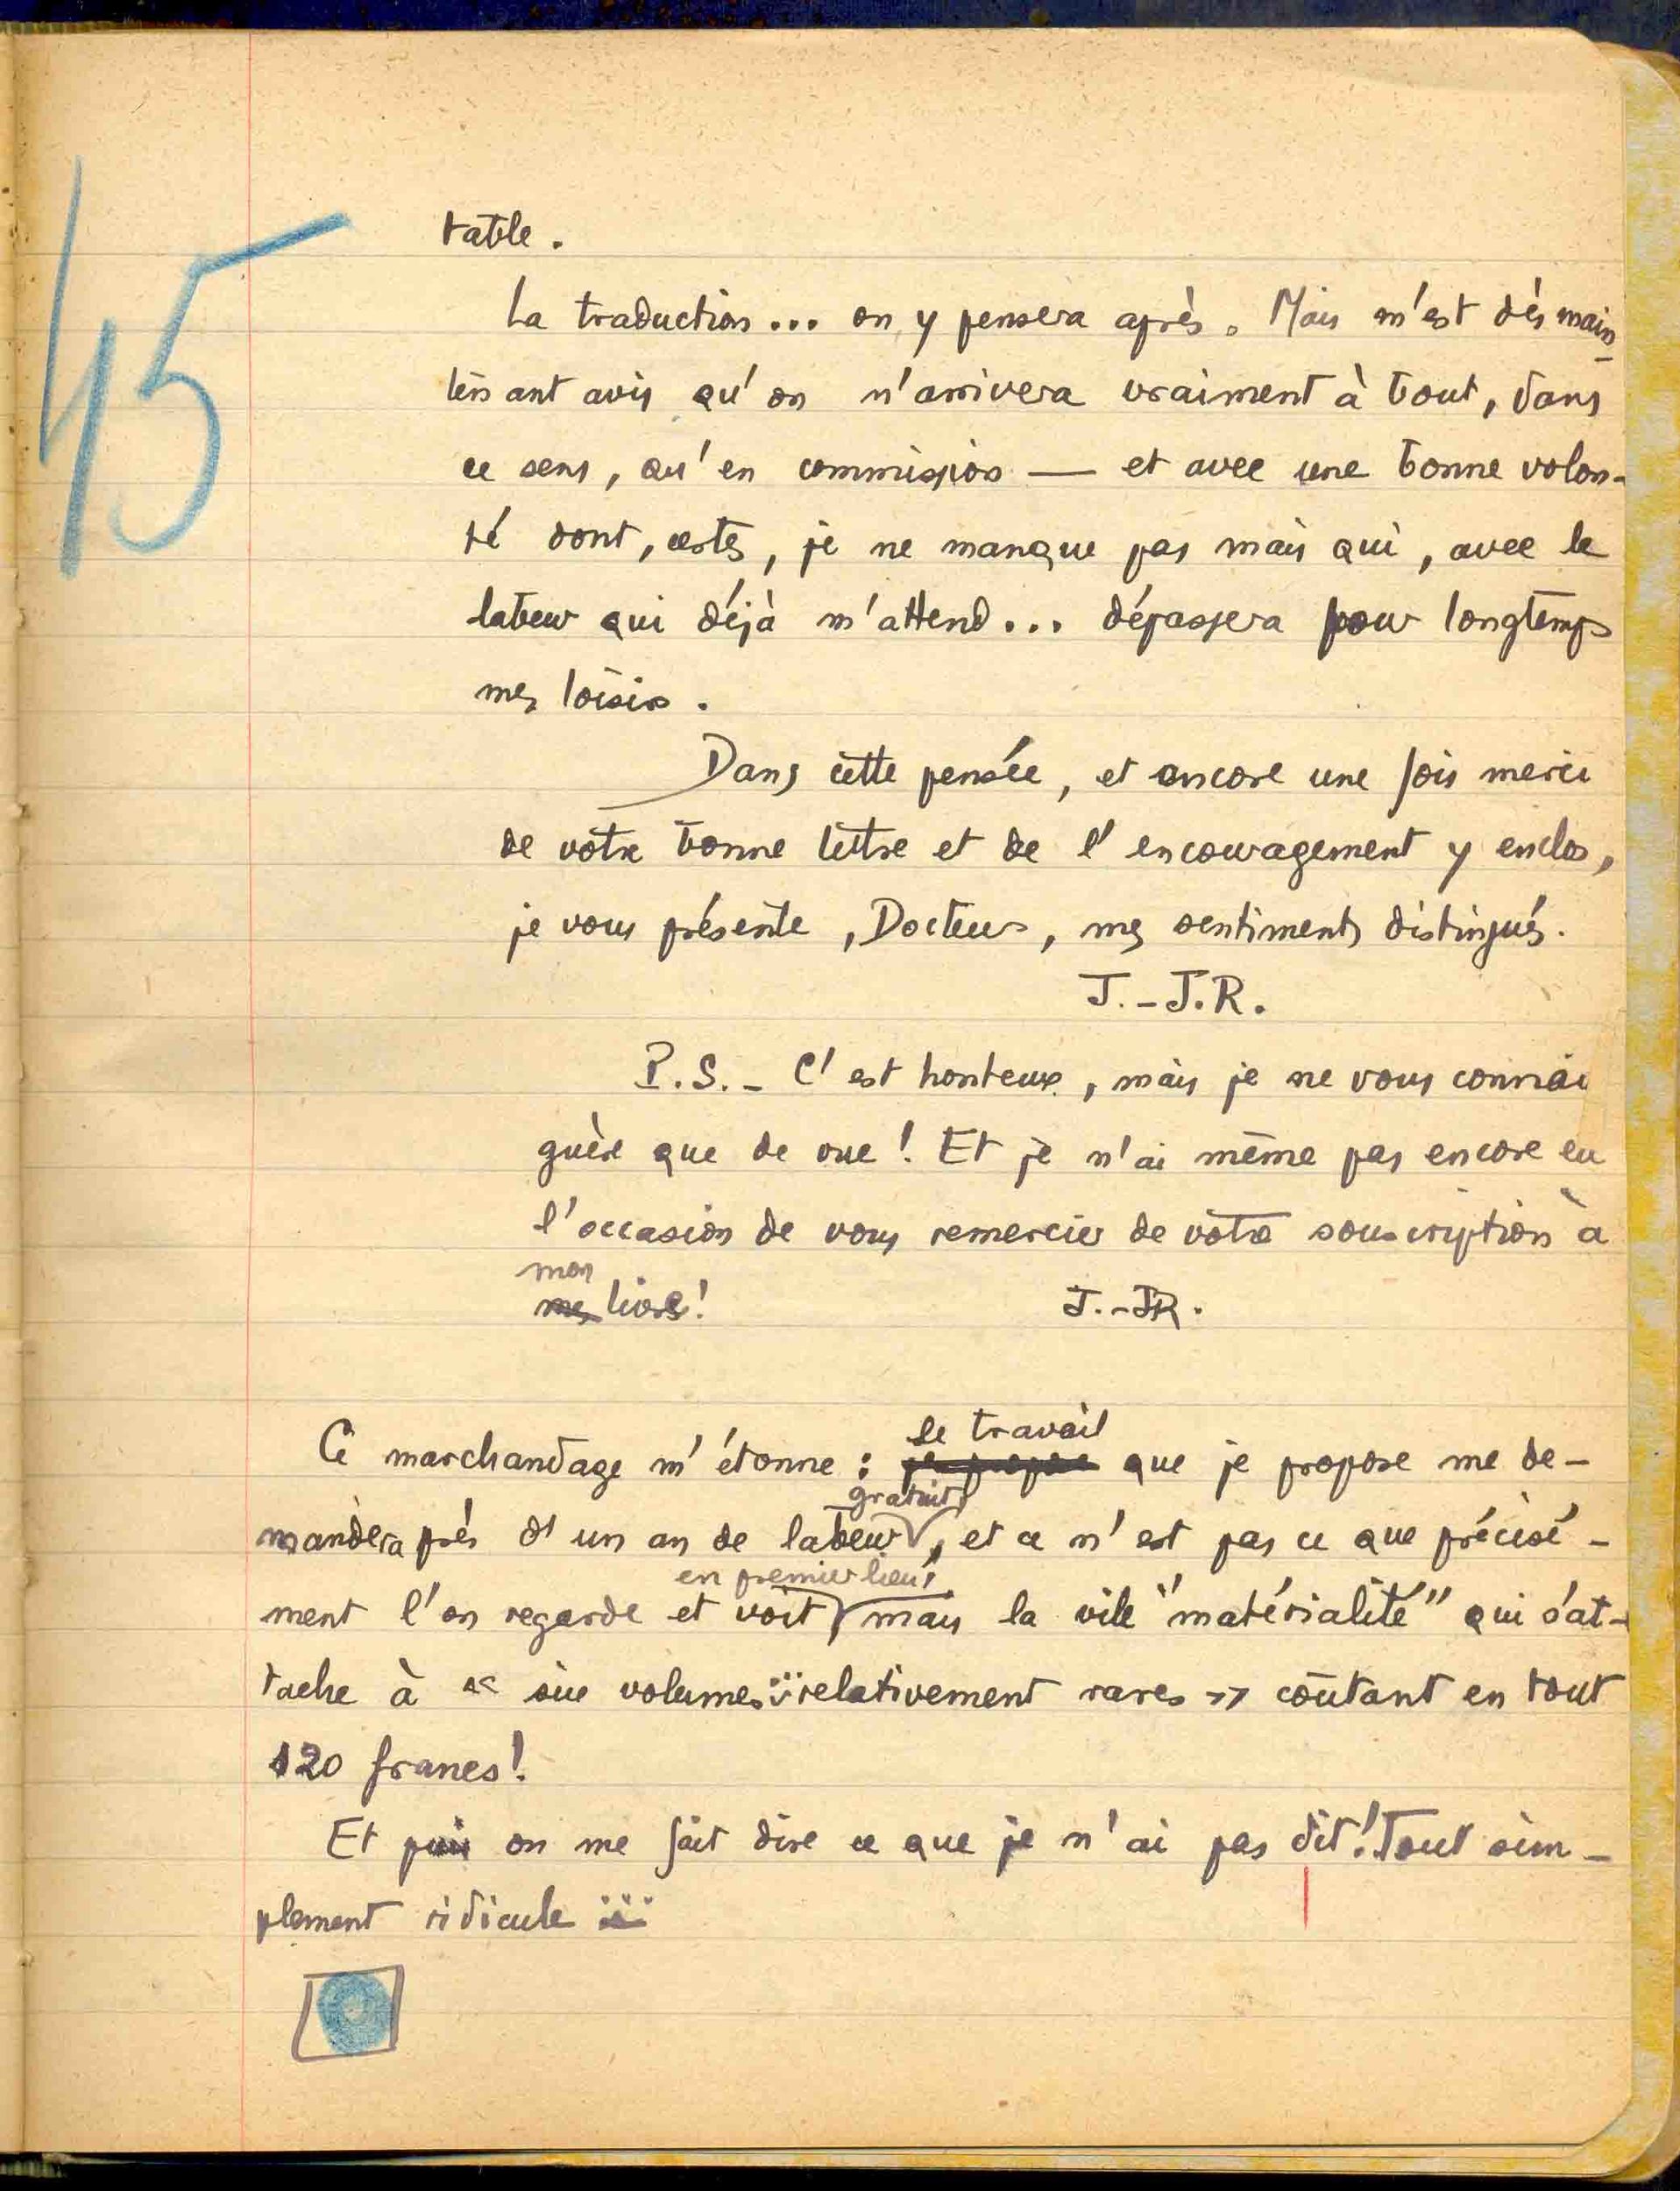 45
table.
La traduction... on y pensera après. Mais m'est dès main-
tenant avis qu'on n'arrivera vraiment à bout, dans
ce sens, qu'en commission — et avec une bonne volon-
té dont, certes, je ne manque pas mais qui, avec le
labeur qui déjà m'attend... dépassera pour longtemps
mes loisirs.
Dans cette pensée, et encore une fois merci
de votre bonne lettre et de l'encouragement y enclos,
je vous présente, Docteur, mes sentiments distingués.
J.-J.R.
P.S.- C'est honteux, mais je ne vous connai
guère que de vue! Et je n'ai même pas encore eu
l'occasion de vous remercier de votre souscription à
mon
mes livre!
J.-JR.
le travail
Ce marchandage m'étonne : je propose que je propose me de-
gratuit
mandera près d'un an de labeur, et ce n'est pas ce que précisé-
en premier lieu!
ment l'on regarde et voit mais la vile "matérialité" qui s'at-
tache à « six volumes relativement rares » coûtant en tout
120 francs!
Et puis on me fait dire ce que je n'ai pas dit! Tout sim-
plement ridicule